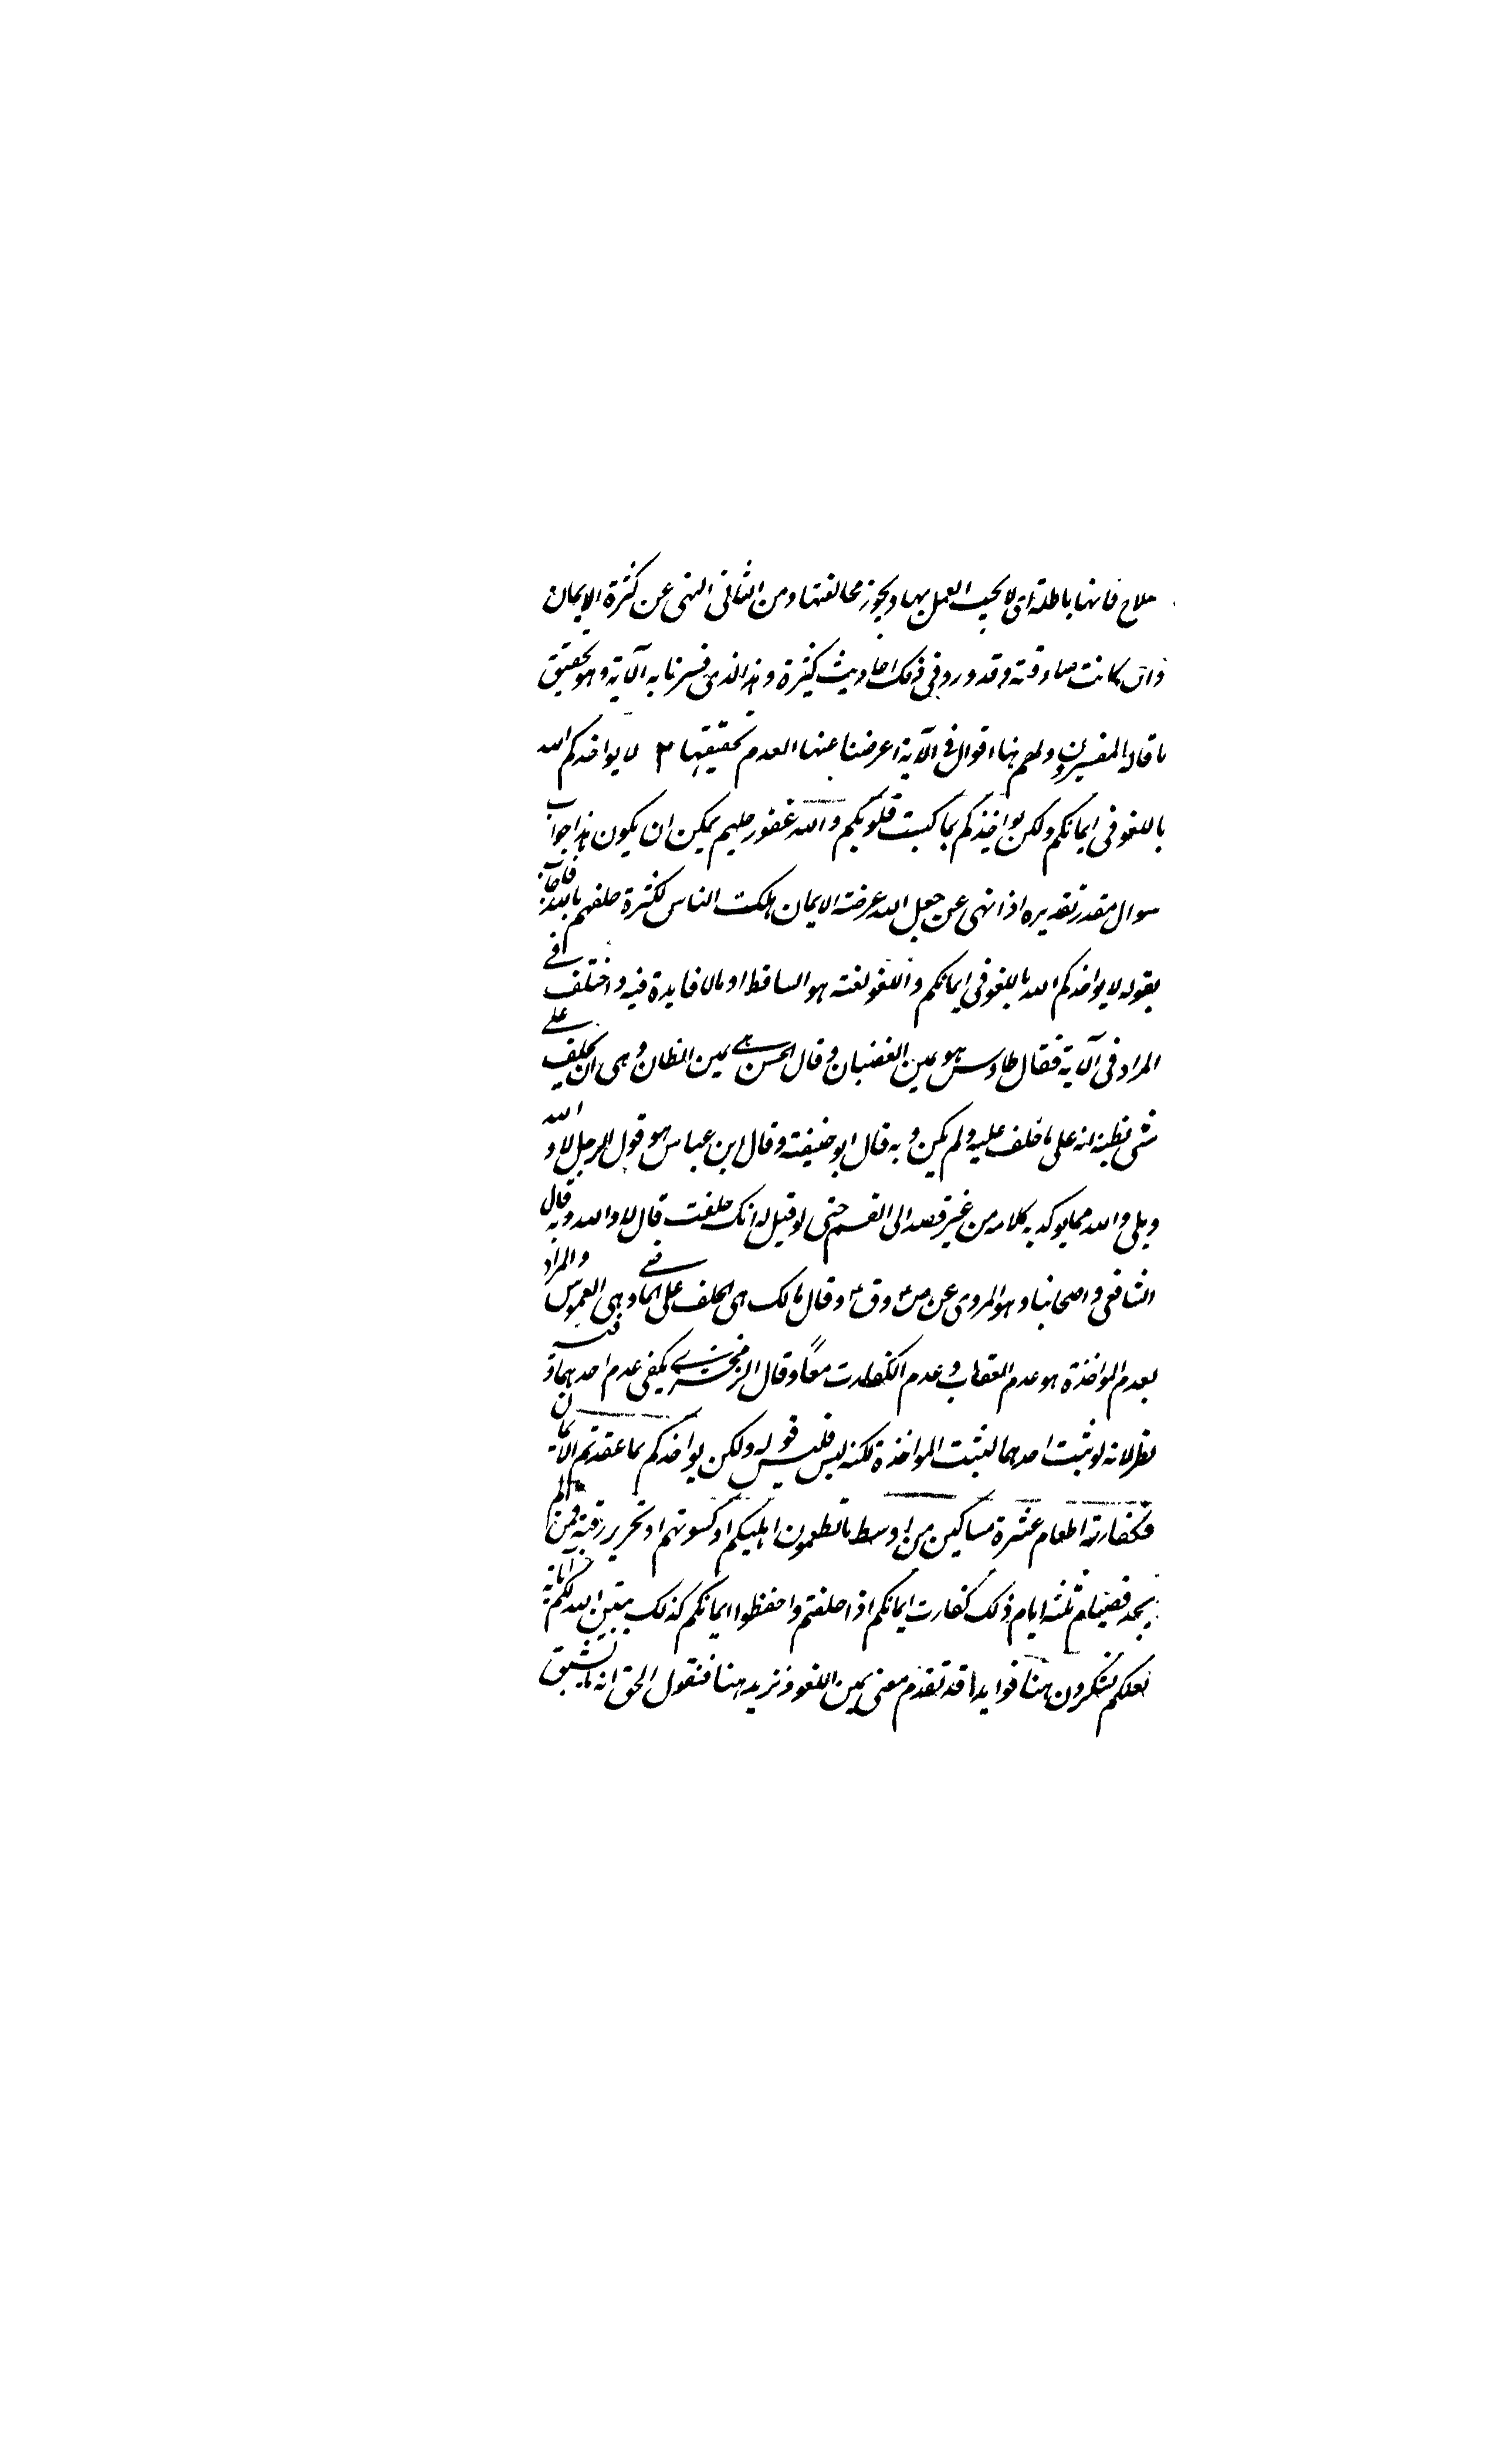 صلاح فانها باطلة اى لا يجب العمل بها و يجوز مخالفتها و من الثانى النهى عن كثرة الايمان
وان كانت صادقة وقد ورد فى ذلك احاديث كثيرة و هذا الذى فسرنا به الآية و هو تحقيق
ما قاله المفسرون ولهم هنا اقوال فى الآية اعرضنا عنها لعدم تحقيقها ٣ لا يواخذكم الله
باللغو فى ايمانكم ولكن يواخذكم بما كسبت قلوبكم والله غفور حليم يمكن ان يكون هذا جواب
سوال مقدر تقديره اذا نهى عن جعل الله عرضة الايمان هلكت الناس لكثرة حلفهم بالله فاجاب
بقوله لا يواخذكم الله باللغو فى ايمانكم و اللغو لغة هو الساقط او ما لا فايدة فيه و اختلف فى
المراد فى الآية فقال طاوس هو يمين الغضبان و قال الحسن هى يمين الظان و هى ان يحلف على
شى يظنه انه على ما حلف عليه ولم يكن و به قال ابو حنيفة و قال ابن عباس هو قول الرجل لا و الله
و بلى و الله مما يوكد به كلامه من غير قصد الى القسم حتى لو قيل له انك حلفت قال لا و الله و به قال
الشافعى و اصحابنا و هو المروى عن ص و ق و قال مالك هى الحلف على الماضى و هى الغموس و المراد
بعدم المواخذة هو عدم العقاب و عدم الكفارت معًا و قال الزمخشرى يكفى عدم احدهما و فيه
نظر لانه لو ثبت احدهما لثبت المواخذة لكنه ليس فليس قوله ولكن يواخذكم بما عقدتم الايمان
فكفارته اطعام عشرة مساكين من اوسط ما تطعمون اهليكم او كسوتهم او تحرير رقبة فمن لم
يجد فصيام ثلثة ايام ذلك كفارت ايمانكم اذا حلفتم و احفظوا ايمانكم كذلك يبين الله لكم آياته
لعلكم تشكرون هنا فوايد ا قد تقدم معنى يمين اللغو و نزيد هنا فنقول الحق انه ما يسبق